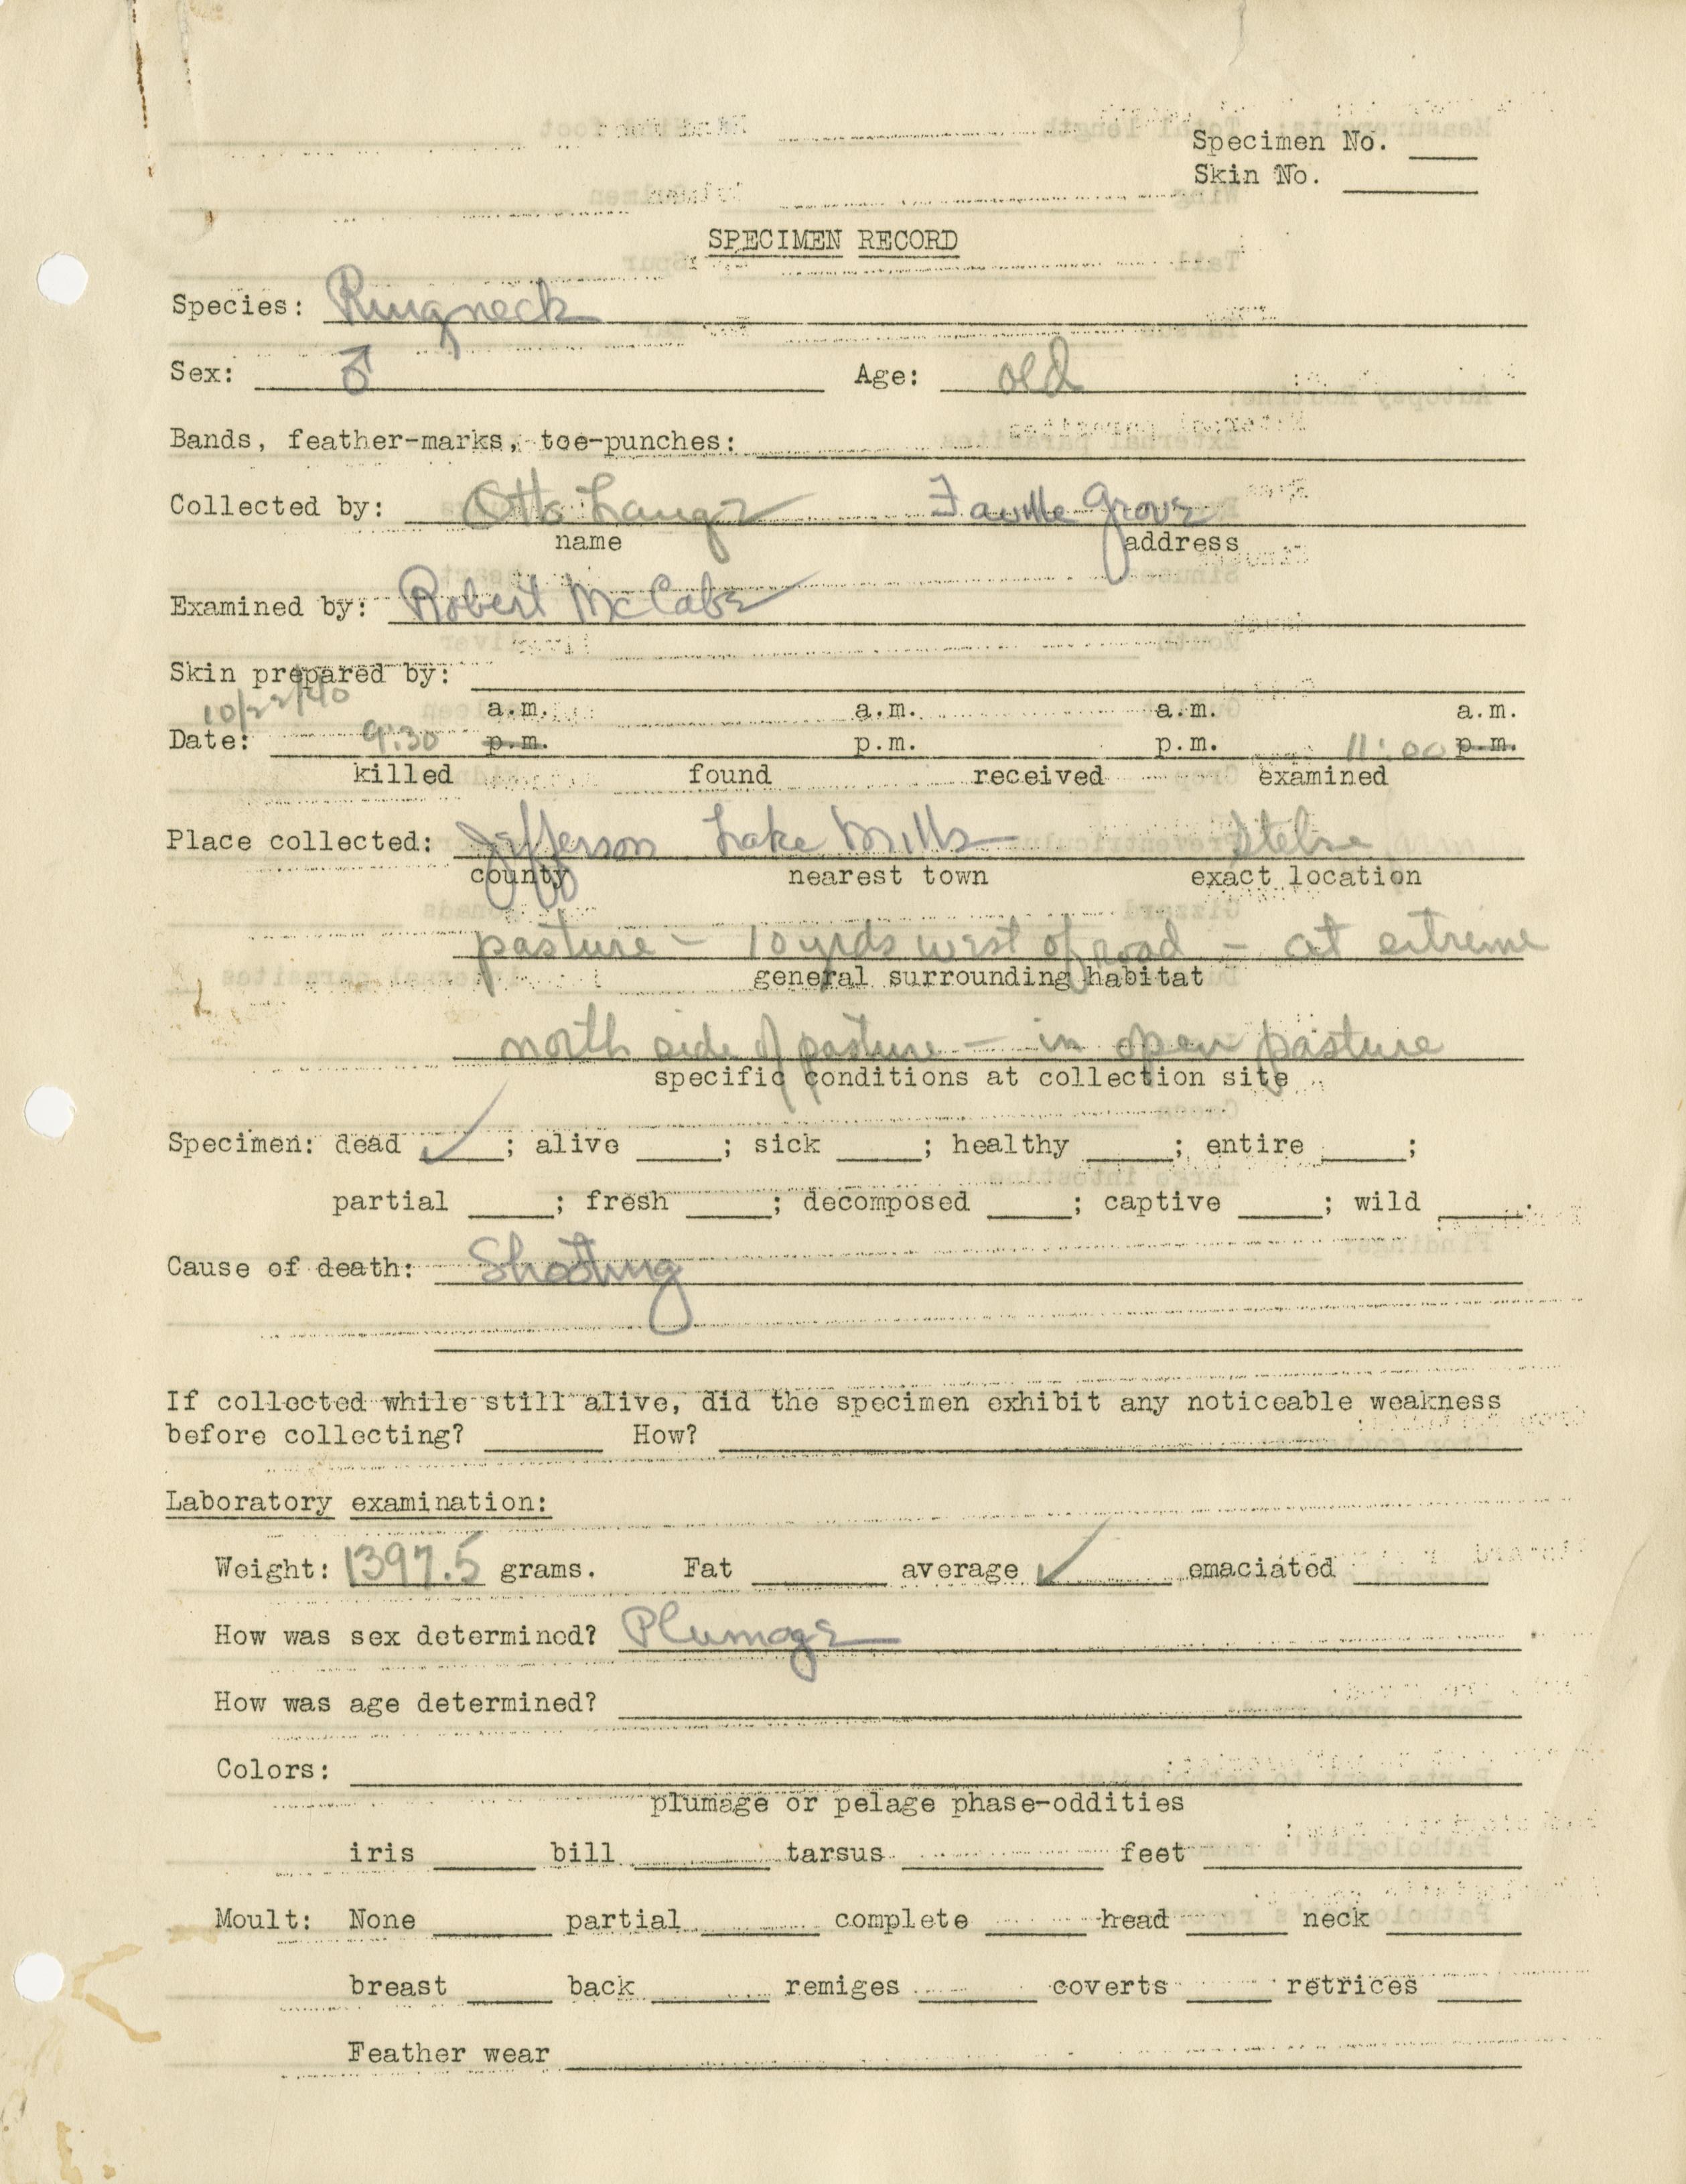 Specimen No. ____
Skin No. ____
SPECIMEN RECORD
Species: Ringneck
Sex: ♂ Age: old
Bands, feather-marks, toe-punches:
Collected by: Otto Lange Faville Grove
name address
Examined by: Robert McCabe
Skin prepared by:
10/22/40
a.m. a.m. a.m. a.m.
Date: 9:30 p.m. p.m. p.m. 11:00 p.m.
killed found received examined
Place collected: Jefferson Lake Mills
county nearest town exact location
pasture - 10 yrds west of road - at extreme
general surrounding habitat
north side of pasture - in open pasture
specific conditions at collection site
Specimen: dead ✓; alive ____; sick ____; healthy ____; entire ____;
partial ____; fresh ____; decomposed ____; captive ____; wild ____.
Cause of death: Shooting
If collected while still alive, did the specimen exhibit any noticeable weakness
before collecting? ____ How?
Laboratory examination:
Weight: 1397.5 grams. Fat ____ average ✓ emaciated ____
How was sex determined? Plumage
How was age determined?
Colors:
plumage or pelage phase-oddities
iris ____ bill ____ tarsus ____ feet ____
Moult: None ____ partial ____ complete ____ head ____ neck ____
breast ____ back ____ remiges ____ coverts ____ retrices ____
Feather wear